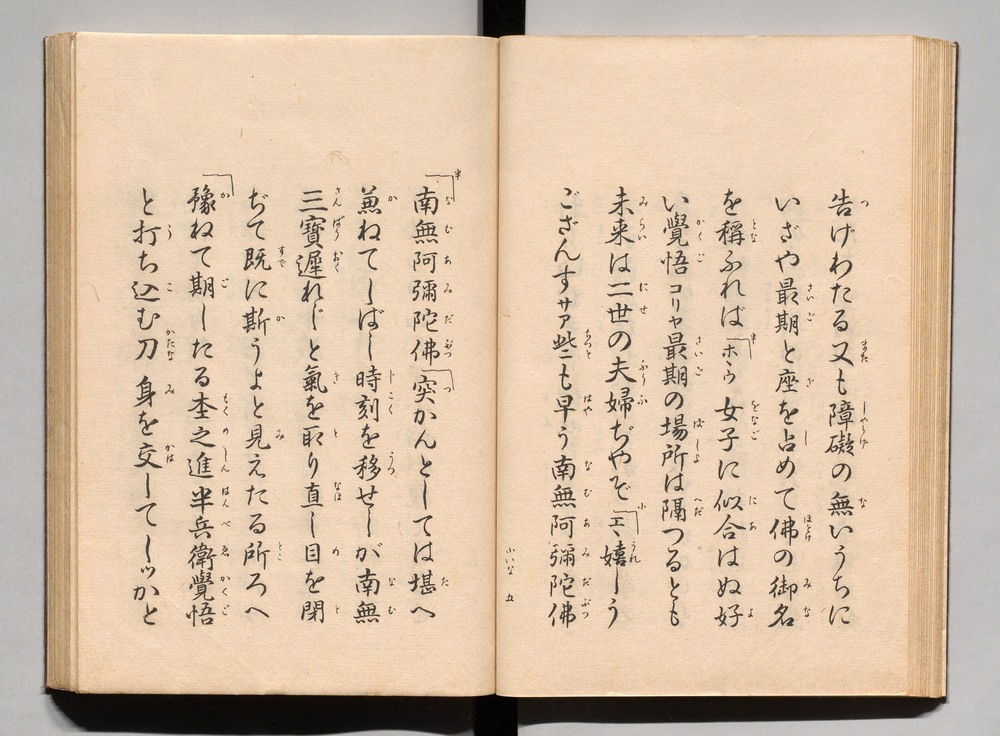 告げわたる又も障礙の無いうちに
いざや最期と座を占めて佛の御名
を稱ふれば「ホヽウ女子に似合はぬ好
い覺悟コリヤ最期の場所は隔つるとも
未来は二世の夫婦ぢやぞ「エヽ嬉しう
ござんすサア些とも早う南無阿彌陀佛
小いな 五
南無阿彌陀佛「突かんとしては堪へ
兼ねてしばし時刻を移せしが南無
三寶遲れじと氣を取り直し目を閉
ぢて既に斯うよと見えたる所ろへ
豫ねて期したる杢之進半兵衛覺悟
と打ち込む刀 身を交してしッかと